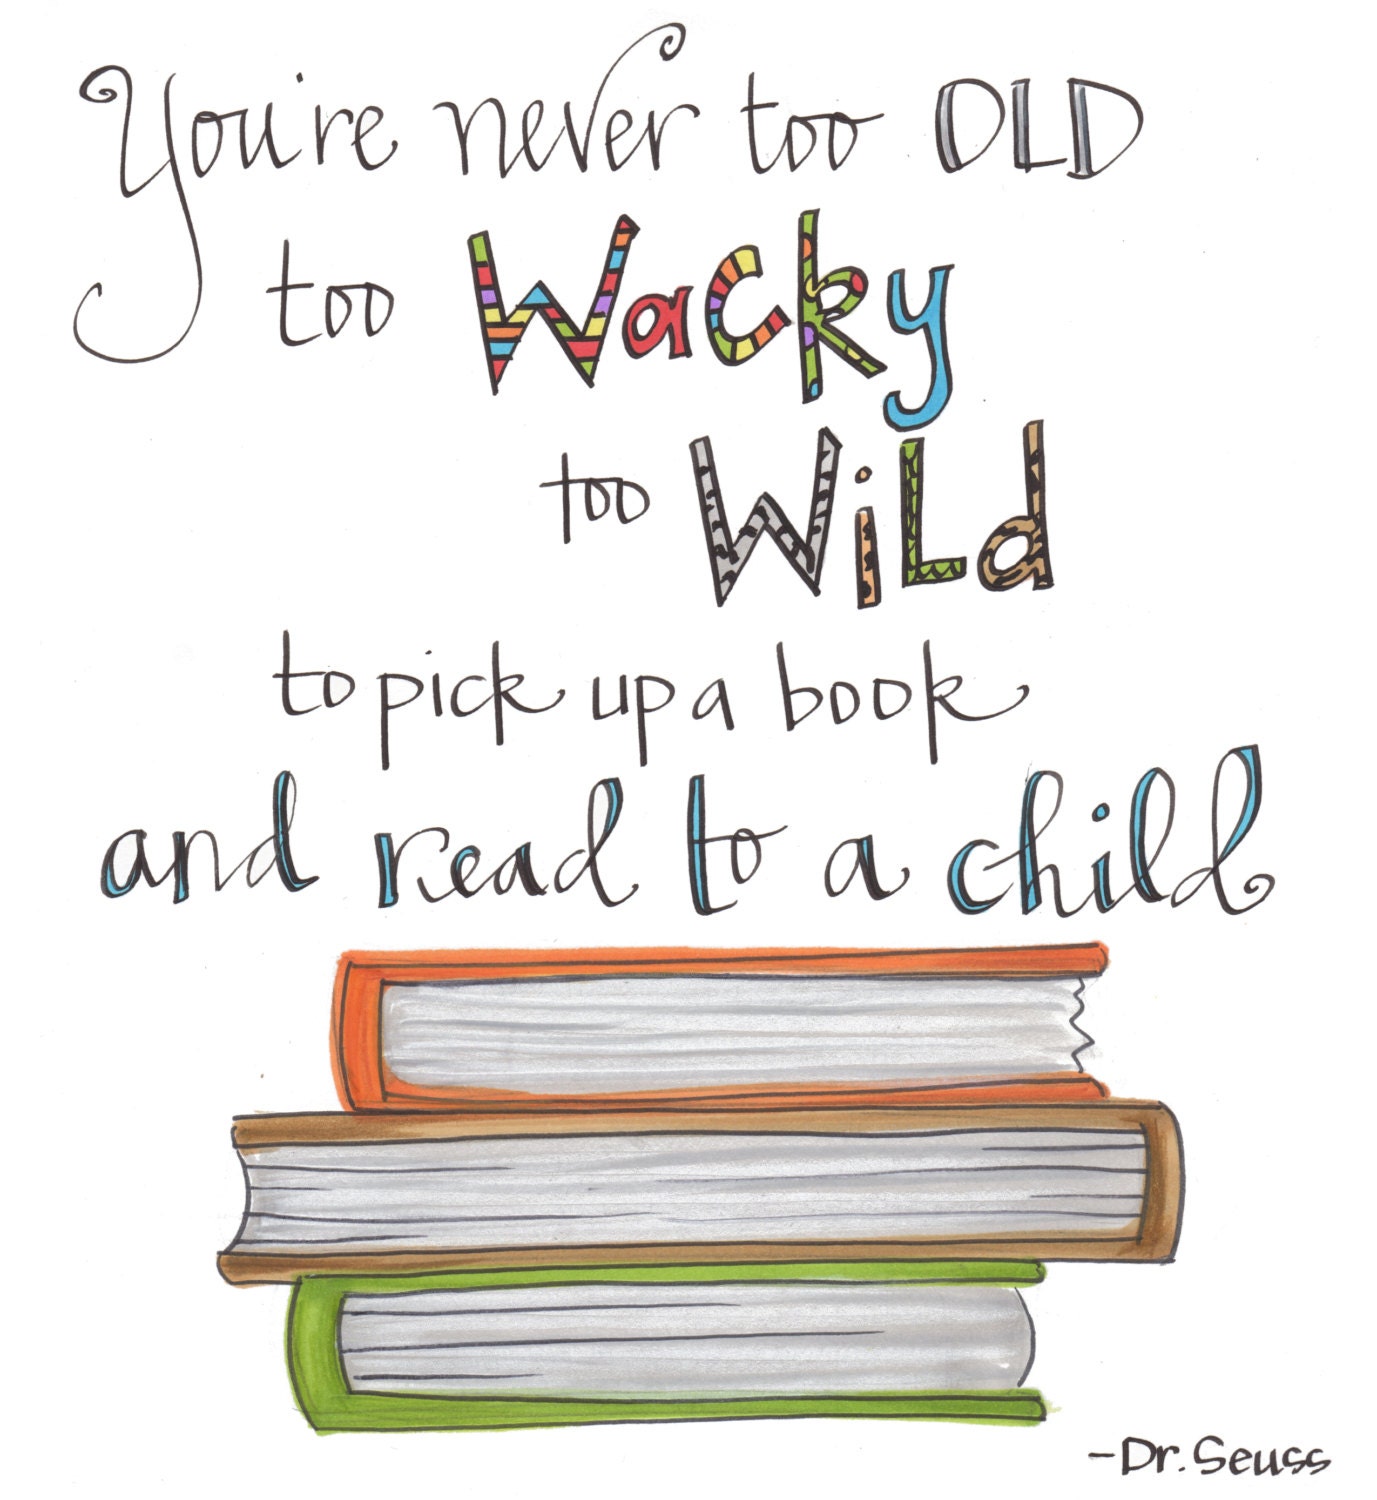 You're never too OLD
too Wacky
too WiLd
to pick up a book
and read to a child
-Dr. Seuss